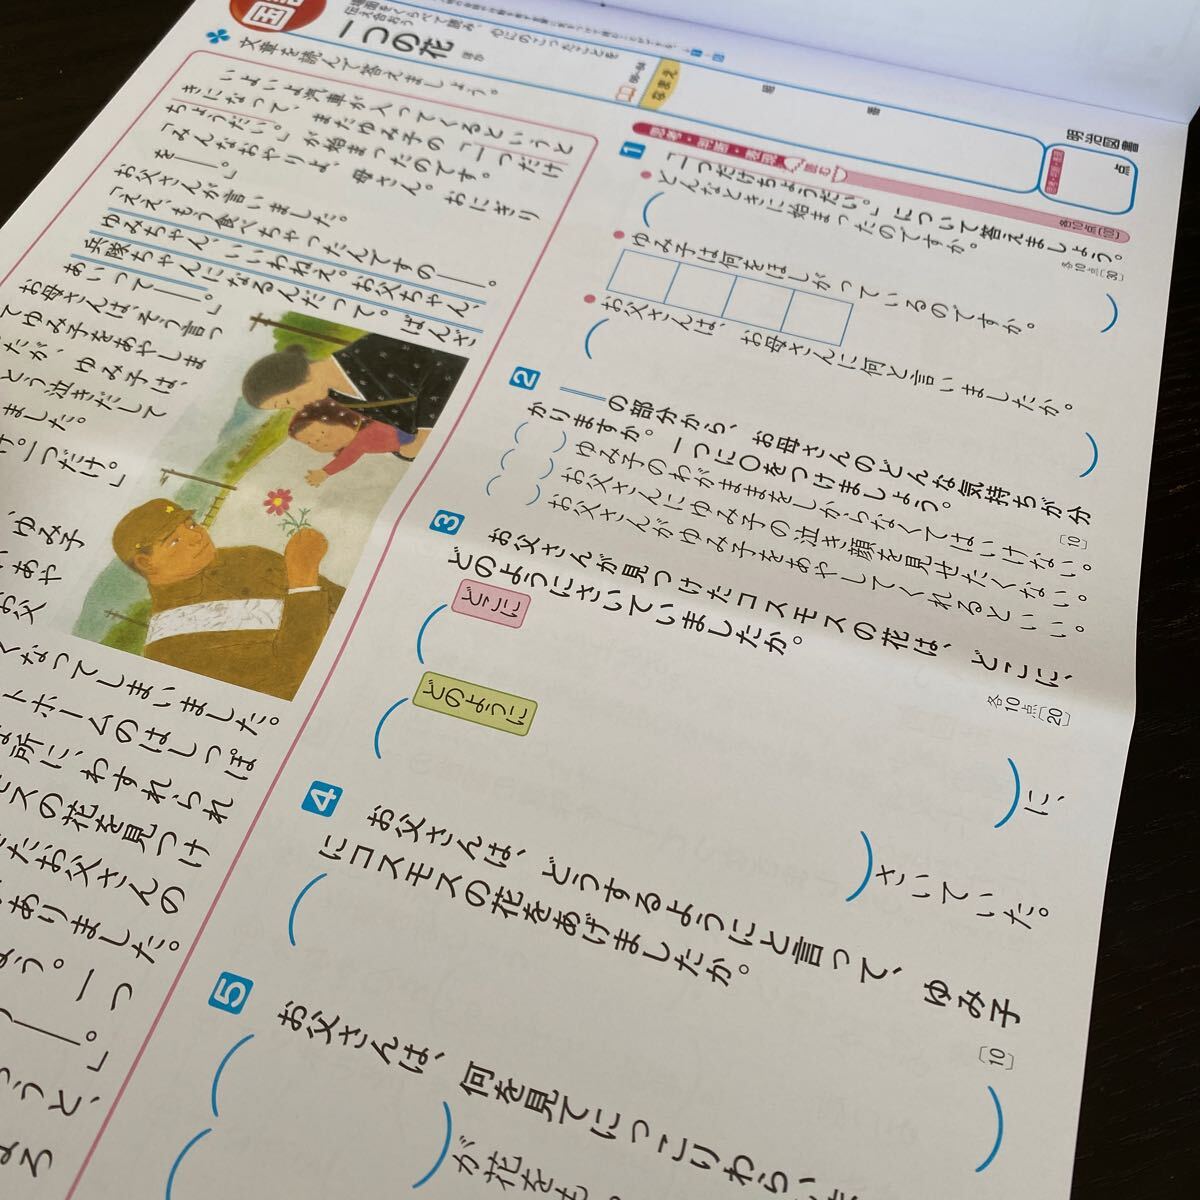 一つの花 ほか
場面をくらべて読み、心にのこったことを
伝え合おう
文章を読んで答えましょう。
なまえ
組
番
点
明治図書
思考・判断・表現
読む
各10点〔100〕
いよいよ汽車が入ってくるというと
きになって、またゆみ子の「一つだけ
ちょうだい。」が始まったのです。
「みんなおやりよ、母さん。おにぎり
を――。」
お父さんが言いました。
「ええ、もう食べちゃったんですの――。
ゆみちゃん、いいわねえ。お父ちゃん、
兵隊ちゃんになるんだって。ばんざ
あいって――。」
お母さんは、そう言っ
てゆみ子をあやしま
たが、ゆみ子は、
とう泣きだして
ました。
一つだけ。」
ゆみ子
あや
お父
くなってしまいました。
トホームのはしっぽ
所に、わすれられ
スの花を見つけ
たお父さんの
ありました。
よう。一つ
――。」
うと、
よろ
1
「一つだけちょうだい。」について答えましょう。
各10点〔30〕
どんなときに始まったのですか。
ゆみ子は何をほしがっているのですか。
お父さんは、お母さんに何と言いましたか。
2
の部分から、お母さんのどんな気持ちが分
かりますか。一つに○をつけましょう。
〔10〕
ゆみ子のわがままをしからなくてはいけない。
お父さんにゆみ子の泣き顔を見せたくない。
お父さんがゆみ子をあやしてくれるといい。
3
お父さんが見つけたコスモスの花は、どこに、
どのようにさいていましたか。
各10点〔20〕
どこに
に、
どのように
さいていた。
4
お父さんは、どうするようにと言って、ゆみ子
にコスモスの花をあげましたか。
〔10〕
5
お父さんは、何を見てにっこりわらい
が花をも